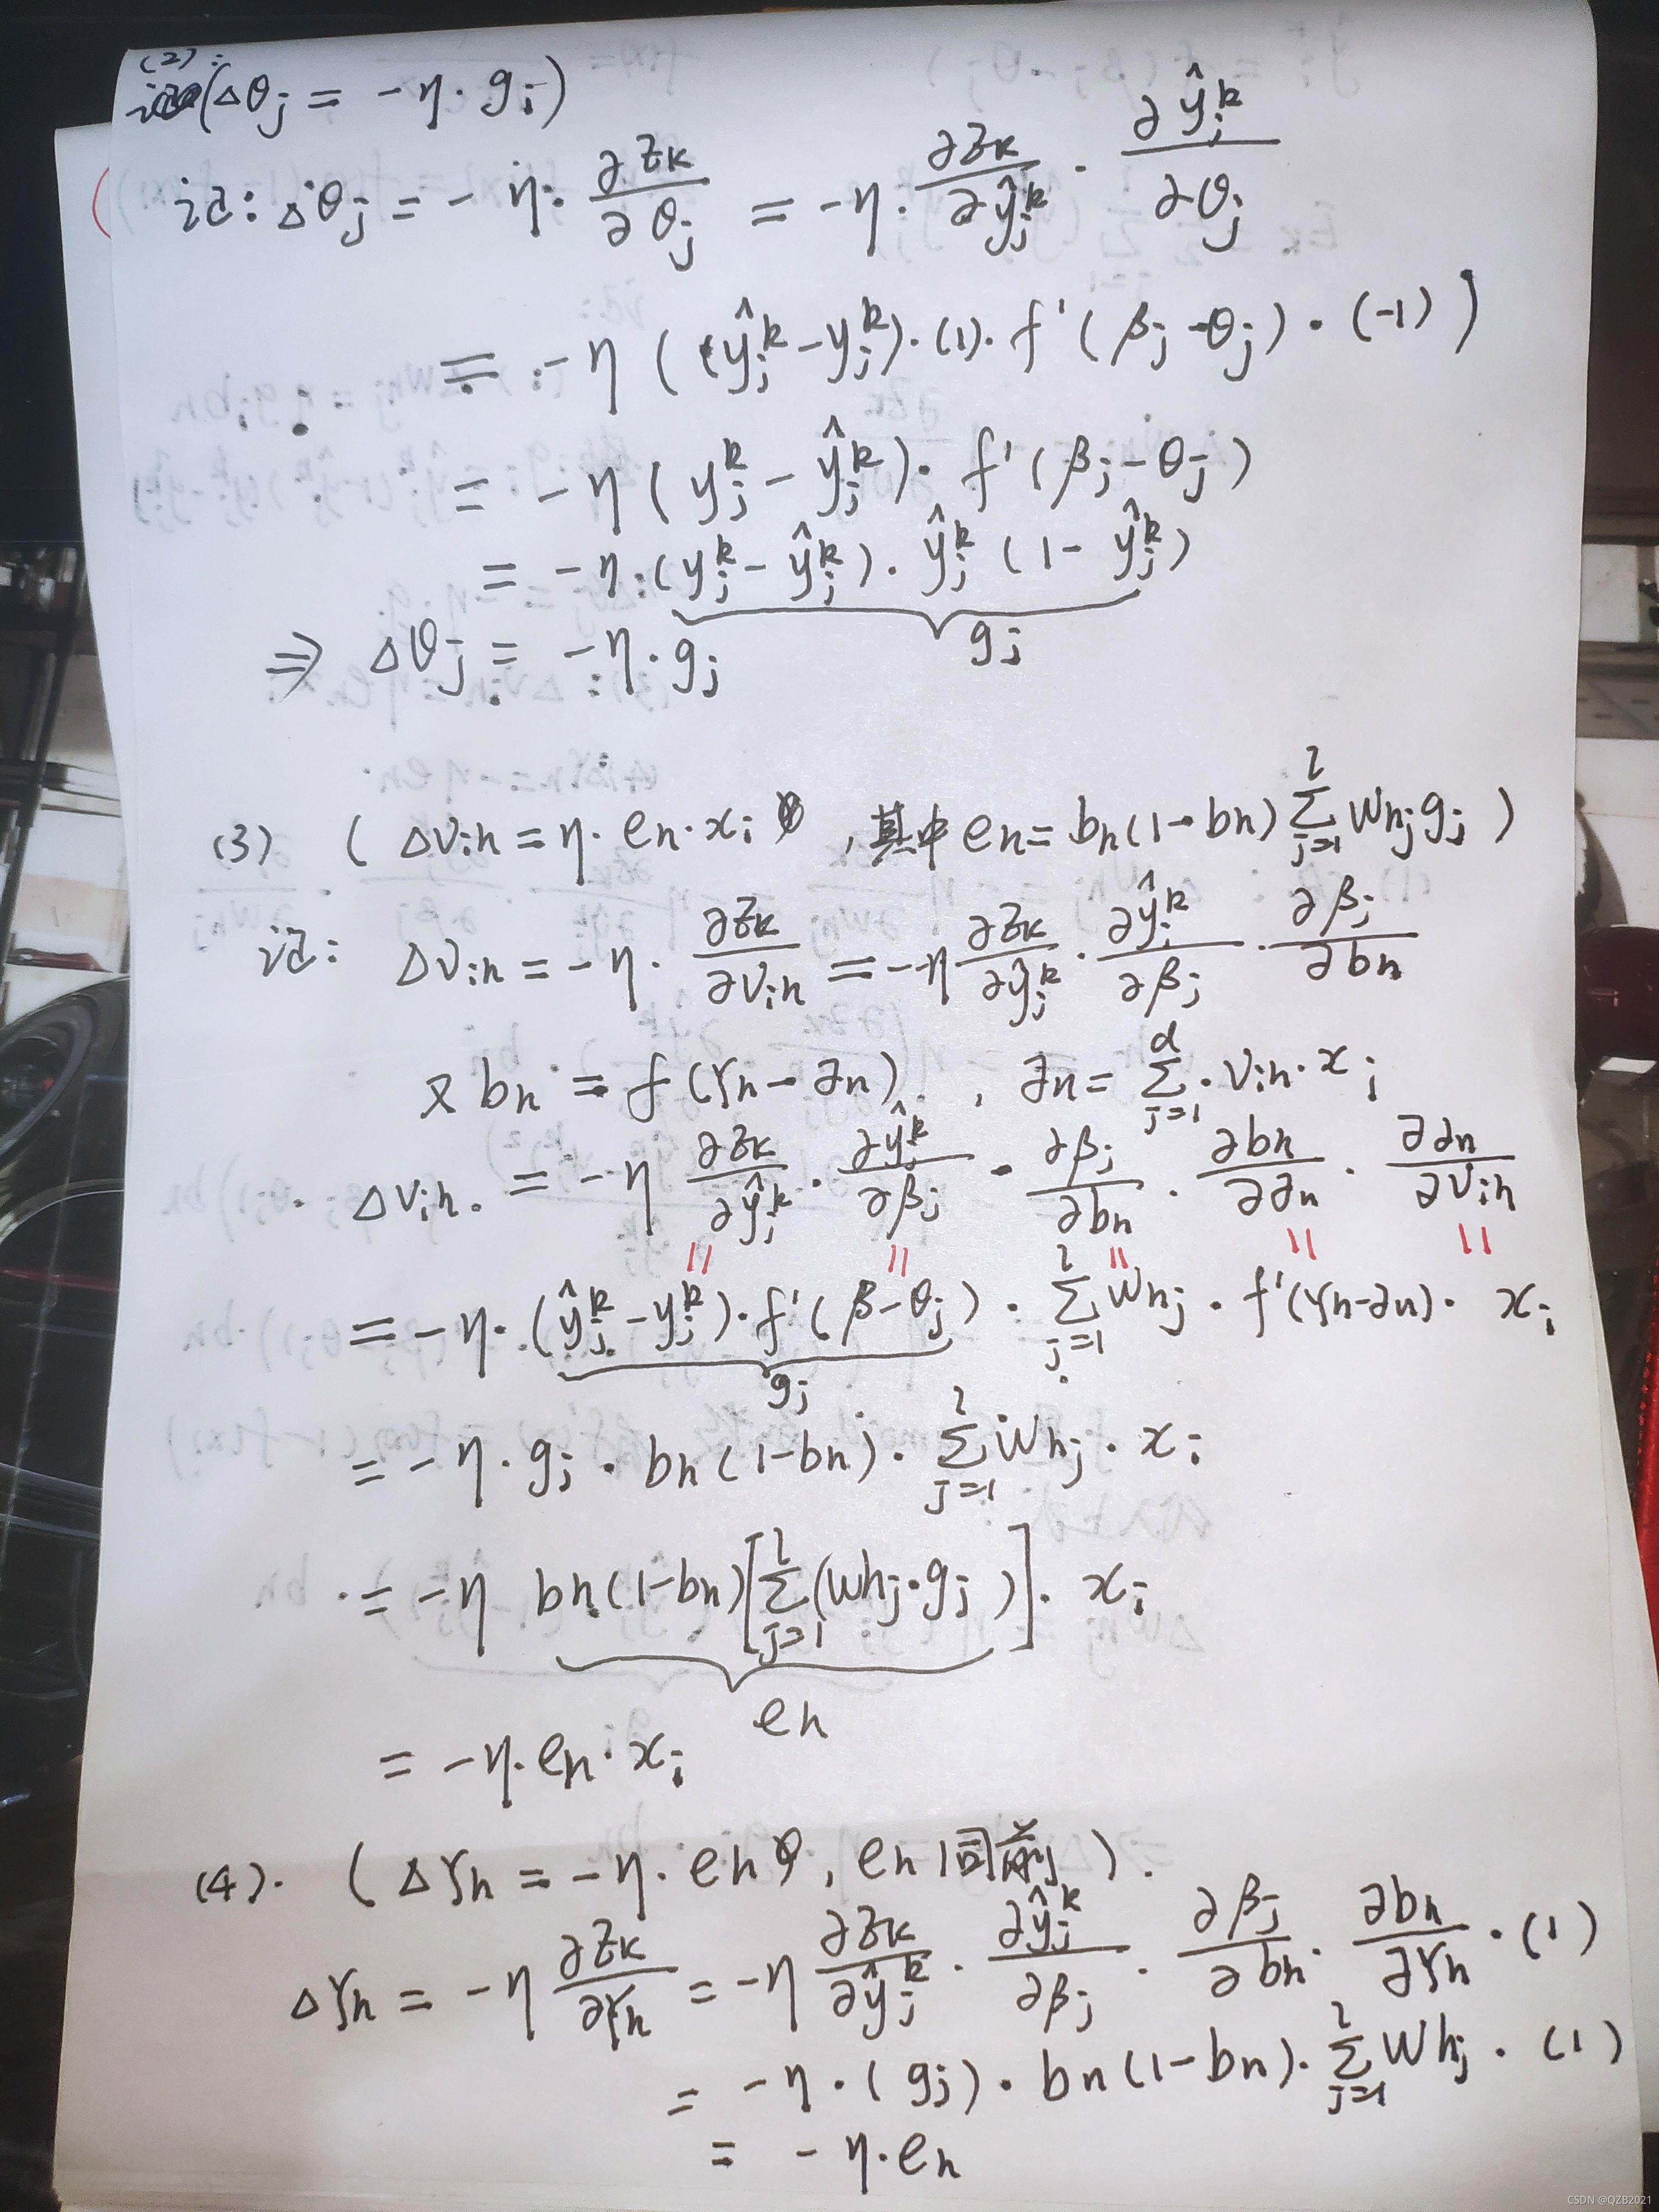 (2):
(Δθj = -η·gj)
记: Δθj = -η·∂Ek/∂θj = -η·∂Ek/∂ŷj^k · ∂ŷj^k/∂θj
= -η((ŷj^k - yj^k)·(1)·f'(βj - θj)·(-1))
= -η(yj^k - ŷj^k)·f'(βj - θj)
= -η·(yj^k - ŷj^k)·ŷj^k(1 - ŷj^k)
gj
⇒ Δθj = -η·gj
(3) (Δvih = η·eh·xi, 其中 eh = bh(1-bh) Σ_{j=1}^{l} Whj gj)
记: Δvih = -η·∂Ek/∂vih = -η ∂Ek/∂ŷj^k · ∂ŷj^k/∂βj · ∂βj/∂bh
又 bh = f(γh - ∂h), ∂h = Σ_{j=1}^{d}·vih·xi
Δvih = -η ∂Ek/∂ŷj^k · ∂ŷj^k/∂βj · ∂βj/∂bh · ∂bh/∂∂h · ∂∂h/∂vih
= -η·(ŷj^k - yj^k)·f'(β - θj)·Σ_{j=1}^{l} Whj·f'(γh - ∂h)·xi
gj
= -η·gj·bh(1-bh)·Σ_{j=1}^{l} Whj·xi
= -η bh(1-bh)[Σ_{j=1}^{l}(whj·gj)]·xi
eh
= -η·eh·xi
(4). (Δγh = -η·eh, eh 同前).
Δγh = -η ∂Ek/∂γh = -η ∂Ek/∂ŷj^k · ∂ŷj^k/∂βj · ∂βj/∂bh · ∂bh/∂γh·(1)
= -η·(gj)·bh(1-bh)·Σ_{j=1}^{l} Whj·(1)
= -η·eh
CSDN @QZB2021